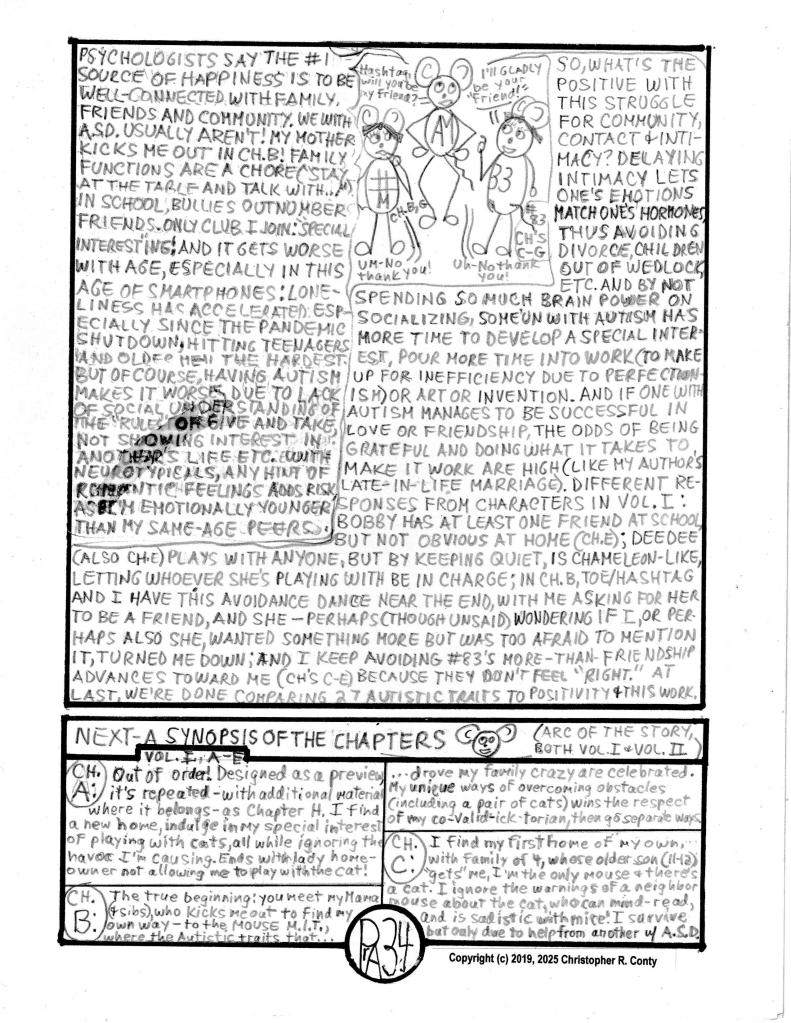 PSYCHOLOGISTS SAY THE #1
SOURCE OF HAPPINESS IS TO BE
WELL-CONNECTED WITH FAMILY,
FRIENDS AND COMMUNITY. WE WITH
A.S.D. USUALLY AREN'T! MY MOTHER
KICKS ME OUT IN CH.B! FAMILY
FUNCTIONS ARE A CHORE("STAY
AT THE TABLE AND TALK WITH...")
IN SCHOOL, BULLIES OUTNUMBER
FRIENDS. ONLY CLUB I JOIN: "SPECIAL
INTEREST"ING! AND IT GETS WORSE
WITH AGE, ESPECIALLY IN THIS
AGE OF SMARTPHONES: LONE-
LINESS HAS ACCELERATED ESP-
ECIALLY SINCE THE PANDEMIC
SHUTDOWN, HITTING TEENAGERS
AND OLDER MEN THE HARDEST.
BUT OF COURSE, HAVING AUTISM
MAKES IT WORSE, DUE TO LACK
OF SOCIAL UNDERSTANDING OF
THE "RULES" OF GIVE AND TAKE,
NOT SHOWING INTEREST IN
ANOTHER'S LIFE ETC. WITH
NEUROTYPICALS, ANY HINT OF
ROMANTIC FEELINGS ADDS RISK,
AS I'M EMOTIONALLY YOUNGER
THAN MY SAME-AGE PEERS.
Hashtag,
will you be
my Friend?
I'll GLADLY
be your
"Friend!"
AM
#
M
B3
CH.B,G
#
83
CH'S
C-G
UM-No
thank you!
Uh-No thank
you!
SO, WHAT'S THE
POSITIVE WITH
THIS STRUGGLE
FOR COMMUNITY,
CONTACT & INTI-
MACY? DELAYING
INTIMACY LETS
ONE'S EMOTIONS
MATCH ONE'S HORMONES,
THUS AVOIDING
DIVORCE, CHILDREN
OUT OF WEDLOCK,
ETC. AND BY NOT
SPENDING SO MUCH BRAIN POWER ON
SOCIALIZING, SOME'UN WITH AUTISM HAS
MORE TIME TO DEVELOP A SPECIAL INTER-
EST, POUR MORE TIME INTO WORK (TO MAKE
UP FOR INEFFICIENCY DUE TO PERFECTION-
ISM) OR ART OR INVENTION. AND IF ONE WITH
AUTISM MANAGES TO BE SUCCESSFUL IN
LOVE OR FRIENDSHIP, THE ODDS OF BEING
GRATEFUL AND DOING WHAT IT TAKES TO
MAKE IT WORK ARE HIGH (LIKE MY AUTHOR'S
LATE-IN-LIFE MARRIAGE). DIFFERENT RE-
SPONSES FROM CHARACTERS IN VOL. I:
BOBBY HAS AT LEAST ONE FRIEND AT SCHOOL,
BUT NOT OBVIOUS AT HOME (CH.E); DEEDEE
(ALSO CH.E) PLAYS WITH ANYONE, BUT BY KEEPING QUIET, IS CHAMELEON-LIKE,
LETTING WHOEVER SHE'S PLAYING WITH BE IN CHARGE; IN CH.B, TOE/HASHTAG
AND I HAVE THIS AVOIDANCE DANCE NEAR THE END, WITH ME ASKING FOR HER
TO BE A FRIEND, AND SHE - PERHAPS (THOUGH UNSAID) WONDERING IF I, OR PER-
HAPS ALSO SHE, WANTED SOMETHING MORE BUT WAS TOO AFRAID TO MENTION
IT, TURNED ME DOWN; AND I KEEP AVOIDING #83'S MORE-THAN-FRIENDSHIP
ADVANCES TOWARD ME (CH'S C-E) BECAUSE THEY DON'T FEEL "RIGHT." AT
LAST, WE'RE DONE COMPARING 27 AUTISTIC TRAITS TO POSITIVITY & THIS WORK.
NEXT-A SYNOPSIS OF THE CHAPTERS
(ARC OF THE STORY,
BOTH VOL. I & VOL. II)
VOL. I, A-E
CH.
A:
Out of order! Designed as a preview,
it's repeated - with additional material
where it belongs - as Chapter H. I find
a new home, indulge in my special interest
of playing with cats, all while ignoring the
havoc I'm causing. Ends with lady home-
owner not allowing me to play with the cat!
CH.
B:
The true beginning: you meet my Mama
(& sibs), who kicks me out to find my
own way - to the MOUSE M.I.T.,
where the Autistic traits that...
...drove my family crazy are celebrated.
My unique ways of overcoming obstacles
(including a pair of cats) wins the respect
of my co-valid-ick-torian, then go separate ways.
CH.
C:
I find my first home of my own,...
with family of 4, whose older son (11-12)
"gets" me, I'm the only mouse & there's
a cat. I ignore the warnings of a neighbor
mouse about the cat, who can mind-read,
and is sadistic with mice! I survive,
but only due to help from another w/ A.S.D.
PA34
Copyright (c) 2019, 2025 Christopher R. Conty